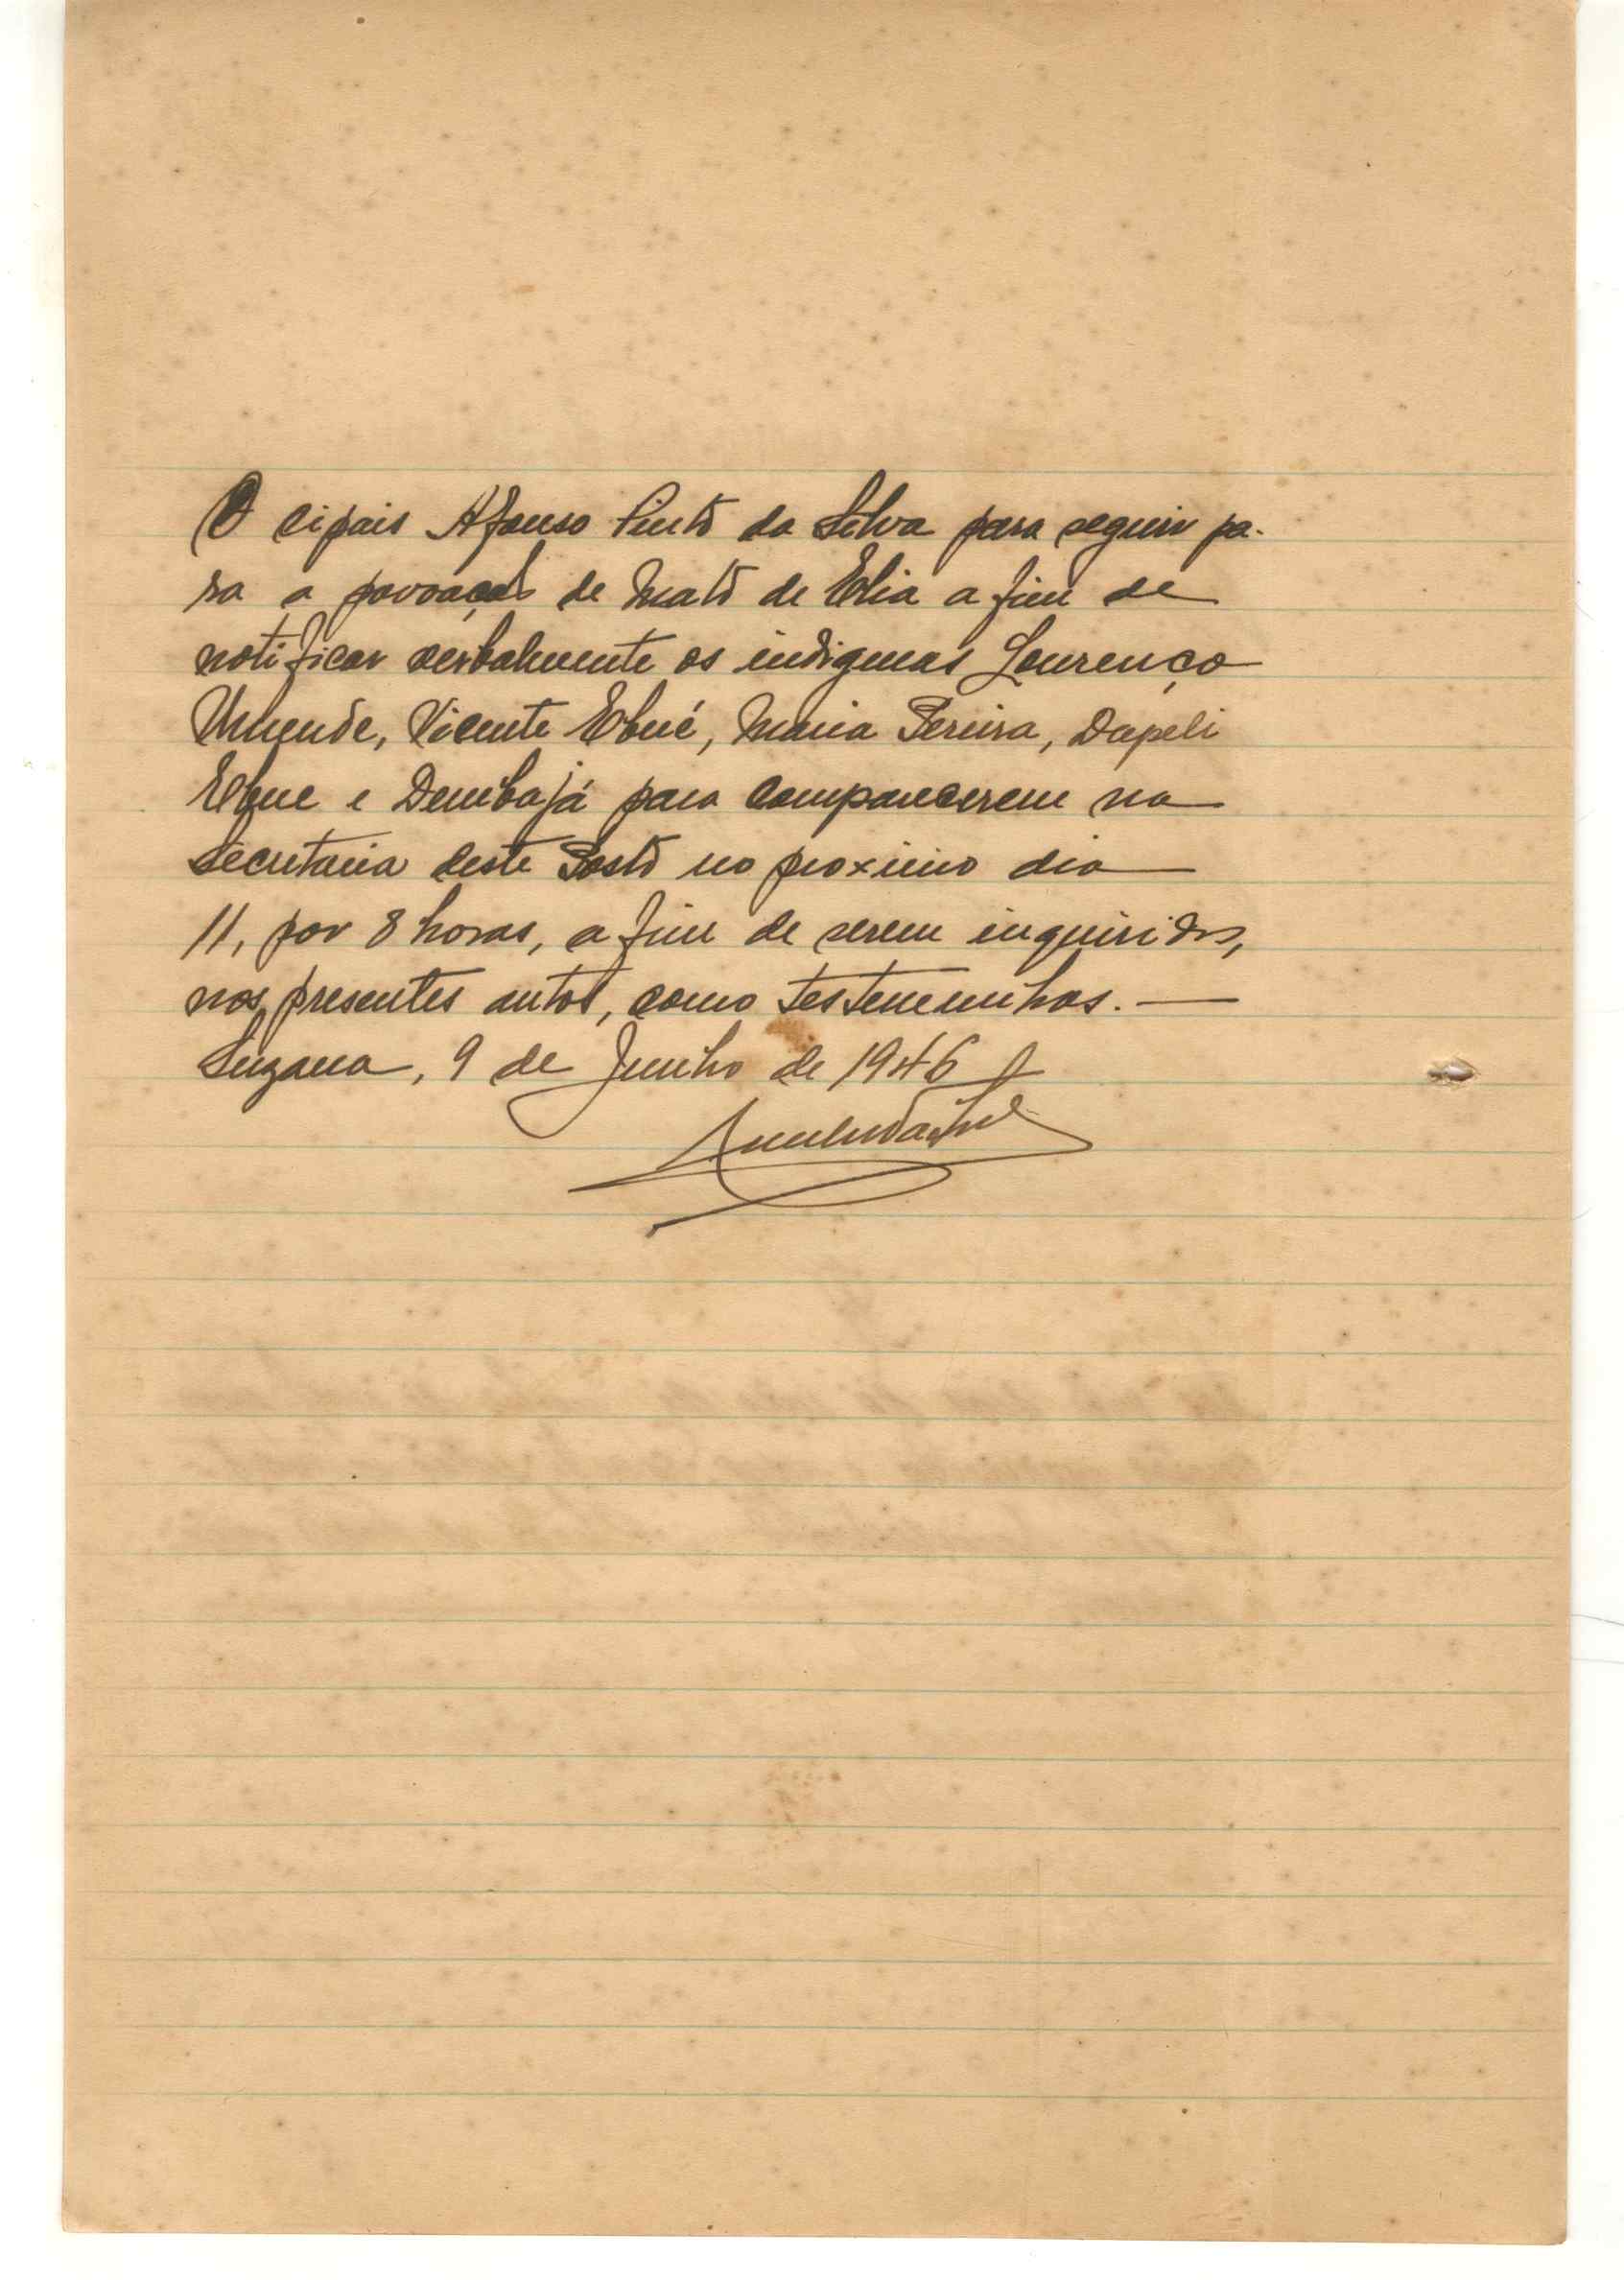 O cipais Afonso Pinto da Silva para seguir pa-
ra a povoação de Mato de Elia a fim de
notificar verbalmente os indigenas Lourenço
Vicente Ebué, Maria Pereira, Dapeli
Ebue e Dembajá para comparecerem na
Secretaria deste Posto no proximo dia
11, por 8 horas, a fim de serem inquiridos,
nos presentes autos, como testemunhas.—
Suzana, 9 de Junho de 1946